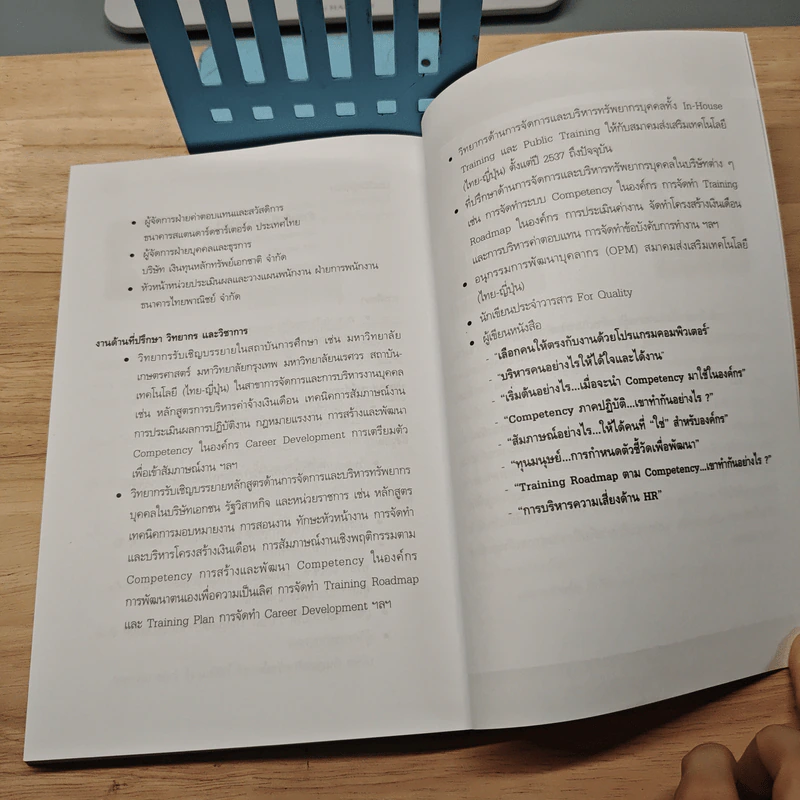 • ผู้จัดการฝ่ายค่าตอบแทนและสวัสดิการ
ธนาคารสแตนดาร์ดชาร์เตอร์ด ประเทศไทย
• ผู้จัดการฝ่ายบุคคลและธุรการ
บริษัท เงินทุนหลักทรัพย์เอกชาติ จำกัด
• หัวหน้าหน่วยประเมินผลและวางแผนพนักงาน ฝ่ายการพนักงาน
ธนาคารไทยพาณิชย์ จำกัด
งานด้านที่ปรึกษา วิทยากร และวิชาการ
• วิทยากรรับเชิญบรรยายในสถาบันการศึกษา เช่น มหาวิทยาลัย
เกษตรศาสตร์ มหาวิทยาลัยกรุงเทพ มหาวิทยาลัยนเรศวร สถาบัน-
เทคโนโลยี (ไทย-ญี่ปุ่น) ในสาขาการจัดการและการบริหารงานบุคคล
เช่น หลักสูตรการบริหารค่าจ้างเงินเดือน เทคนิคการสัมภาษณ์งาน
การประเมินผลการปฏิบัติงาน กฎหมายแรงงาน การสร้างและพัฒนา
Competency ในองค์กร Career Development การเตรียมตัว
เพื่อเข้าสัมภาษณ์งาน ฯลฯ
• วิทยากรรับเชิญบรรยายหลักสูตรด้านการจัดการและบริหารทรัพยากร
บุคคลในบริษัทเอกชน รัฐวิสาหกิจ และหน่วยราชการ เช่น หลักสูตร
เทคนิคการมอบหมายงาน การสอนงาน ทักษะหัวหน้างาน การจัดทำ
และบริหารโครงสร้างเงินเดือน การสัมภาษณ์งานเชิงพฤติกรรมตาม
Competency การสร้างและพัฒนา Competency ในองค์กร
การพัฒนาตนเองเพื่อความเป็นเลิศ การจัดทำ Training Roadmap
และ Training Plan การจัดทำ Career Development ฯลฯ
• วิทยากรด้านการจัดการและบริหารทรัพยากรบุคคลทั้ง In-House
Training และ Public Training ให้กับสมาคมส่งเสริมเทคโนโลยี
(ไทย-ญี่ปุ่น) ตั้งแต่ปี 2537 ถึงปัจจุบัน
• ที่ปรึกษาด้านการจัดการและบริหารทรัพยากรบุคคลในบริษัทต่าง ๆ
เช่น การจัดทำระบบ Competency ในองค์กร การจัดทำ Training
Roadmap ในองค์กร การประเมินค่างาน จัดทำโครงสร้างเงินเดือน
และการบริหารค่าตอบแทน การจัดทำข้อบังคับการทำงาน ฯลฯ
• อนุกรรมการพัฒนาบุคลากร (OPM) สมาคมส่งเสริมเทคโนโลยี
(ไทย-ญี่ปุ่น)
• นักเขียนประจำวารสาร For Quality
• ผู้เขียนหนังสือ
- "เลือกคนให้ตรงกับงานด้วยโปรแกรมคอมพิวเตอร์"
- "บริหารคนอย่างไรให้ได้ใจและได้งาน"
- "เริ่มต้นอย่างไร...เมื่อจะนำ Competency มาใช้ในองค์กร"
- "Competency ภาคปฏิบัติ...เขาทำกันอย่างไร ?"
- "สัมภาษณ์อย่างไร...ให้ได้คนที่ "ใช่" สำหรับองค์กร"
- "ทุนมนุษย์...การกำหนดตัวชี้วัดเพื่อพัฒนา"
- "Training Roadmap ตาม Competency...เขาทำกันอย่างไร ?"
- "การบริหารความเสี่ยงด้าน HR"